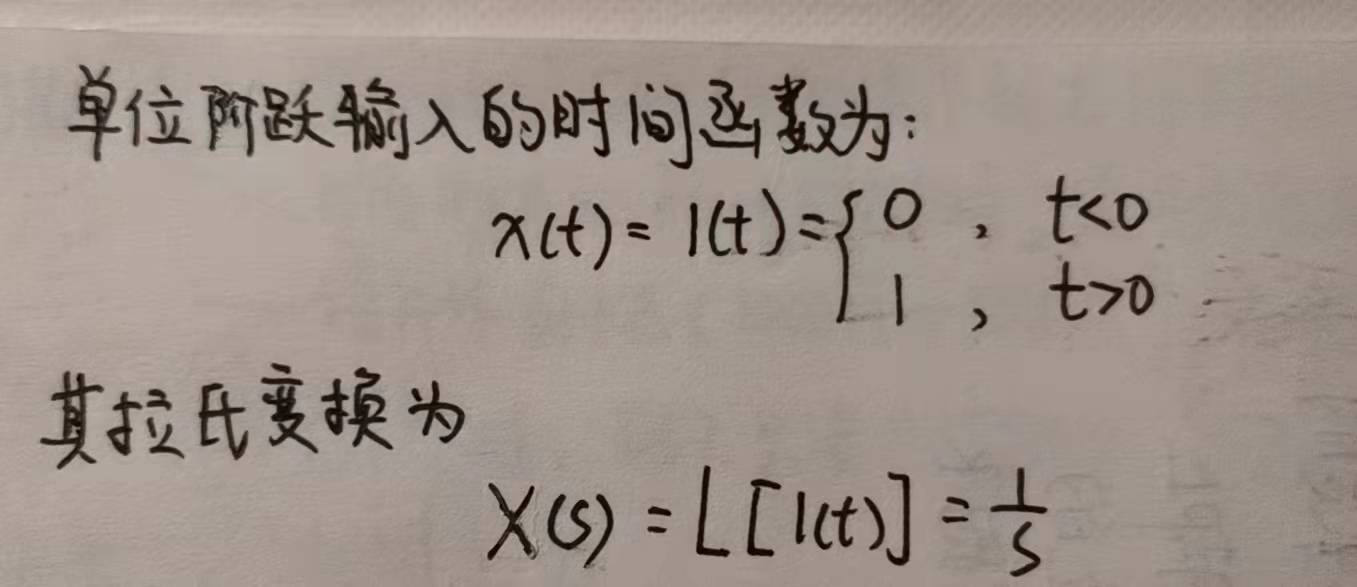 单位阶跃输入的时间函数为:
x(t) = 1(t) = { 0 , t<0
1 , t>0
其拉氏变换为
X(s) = L[1(t)] = 1/s